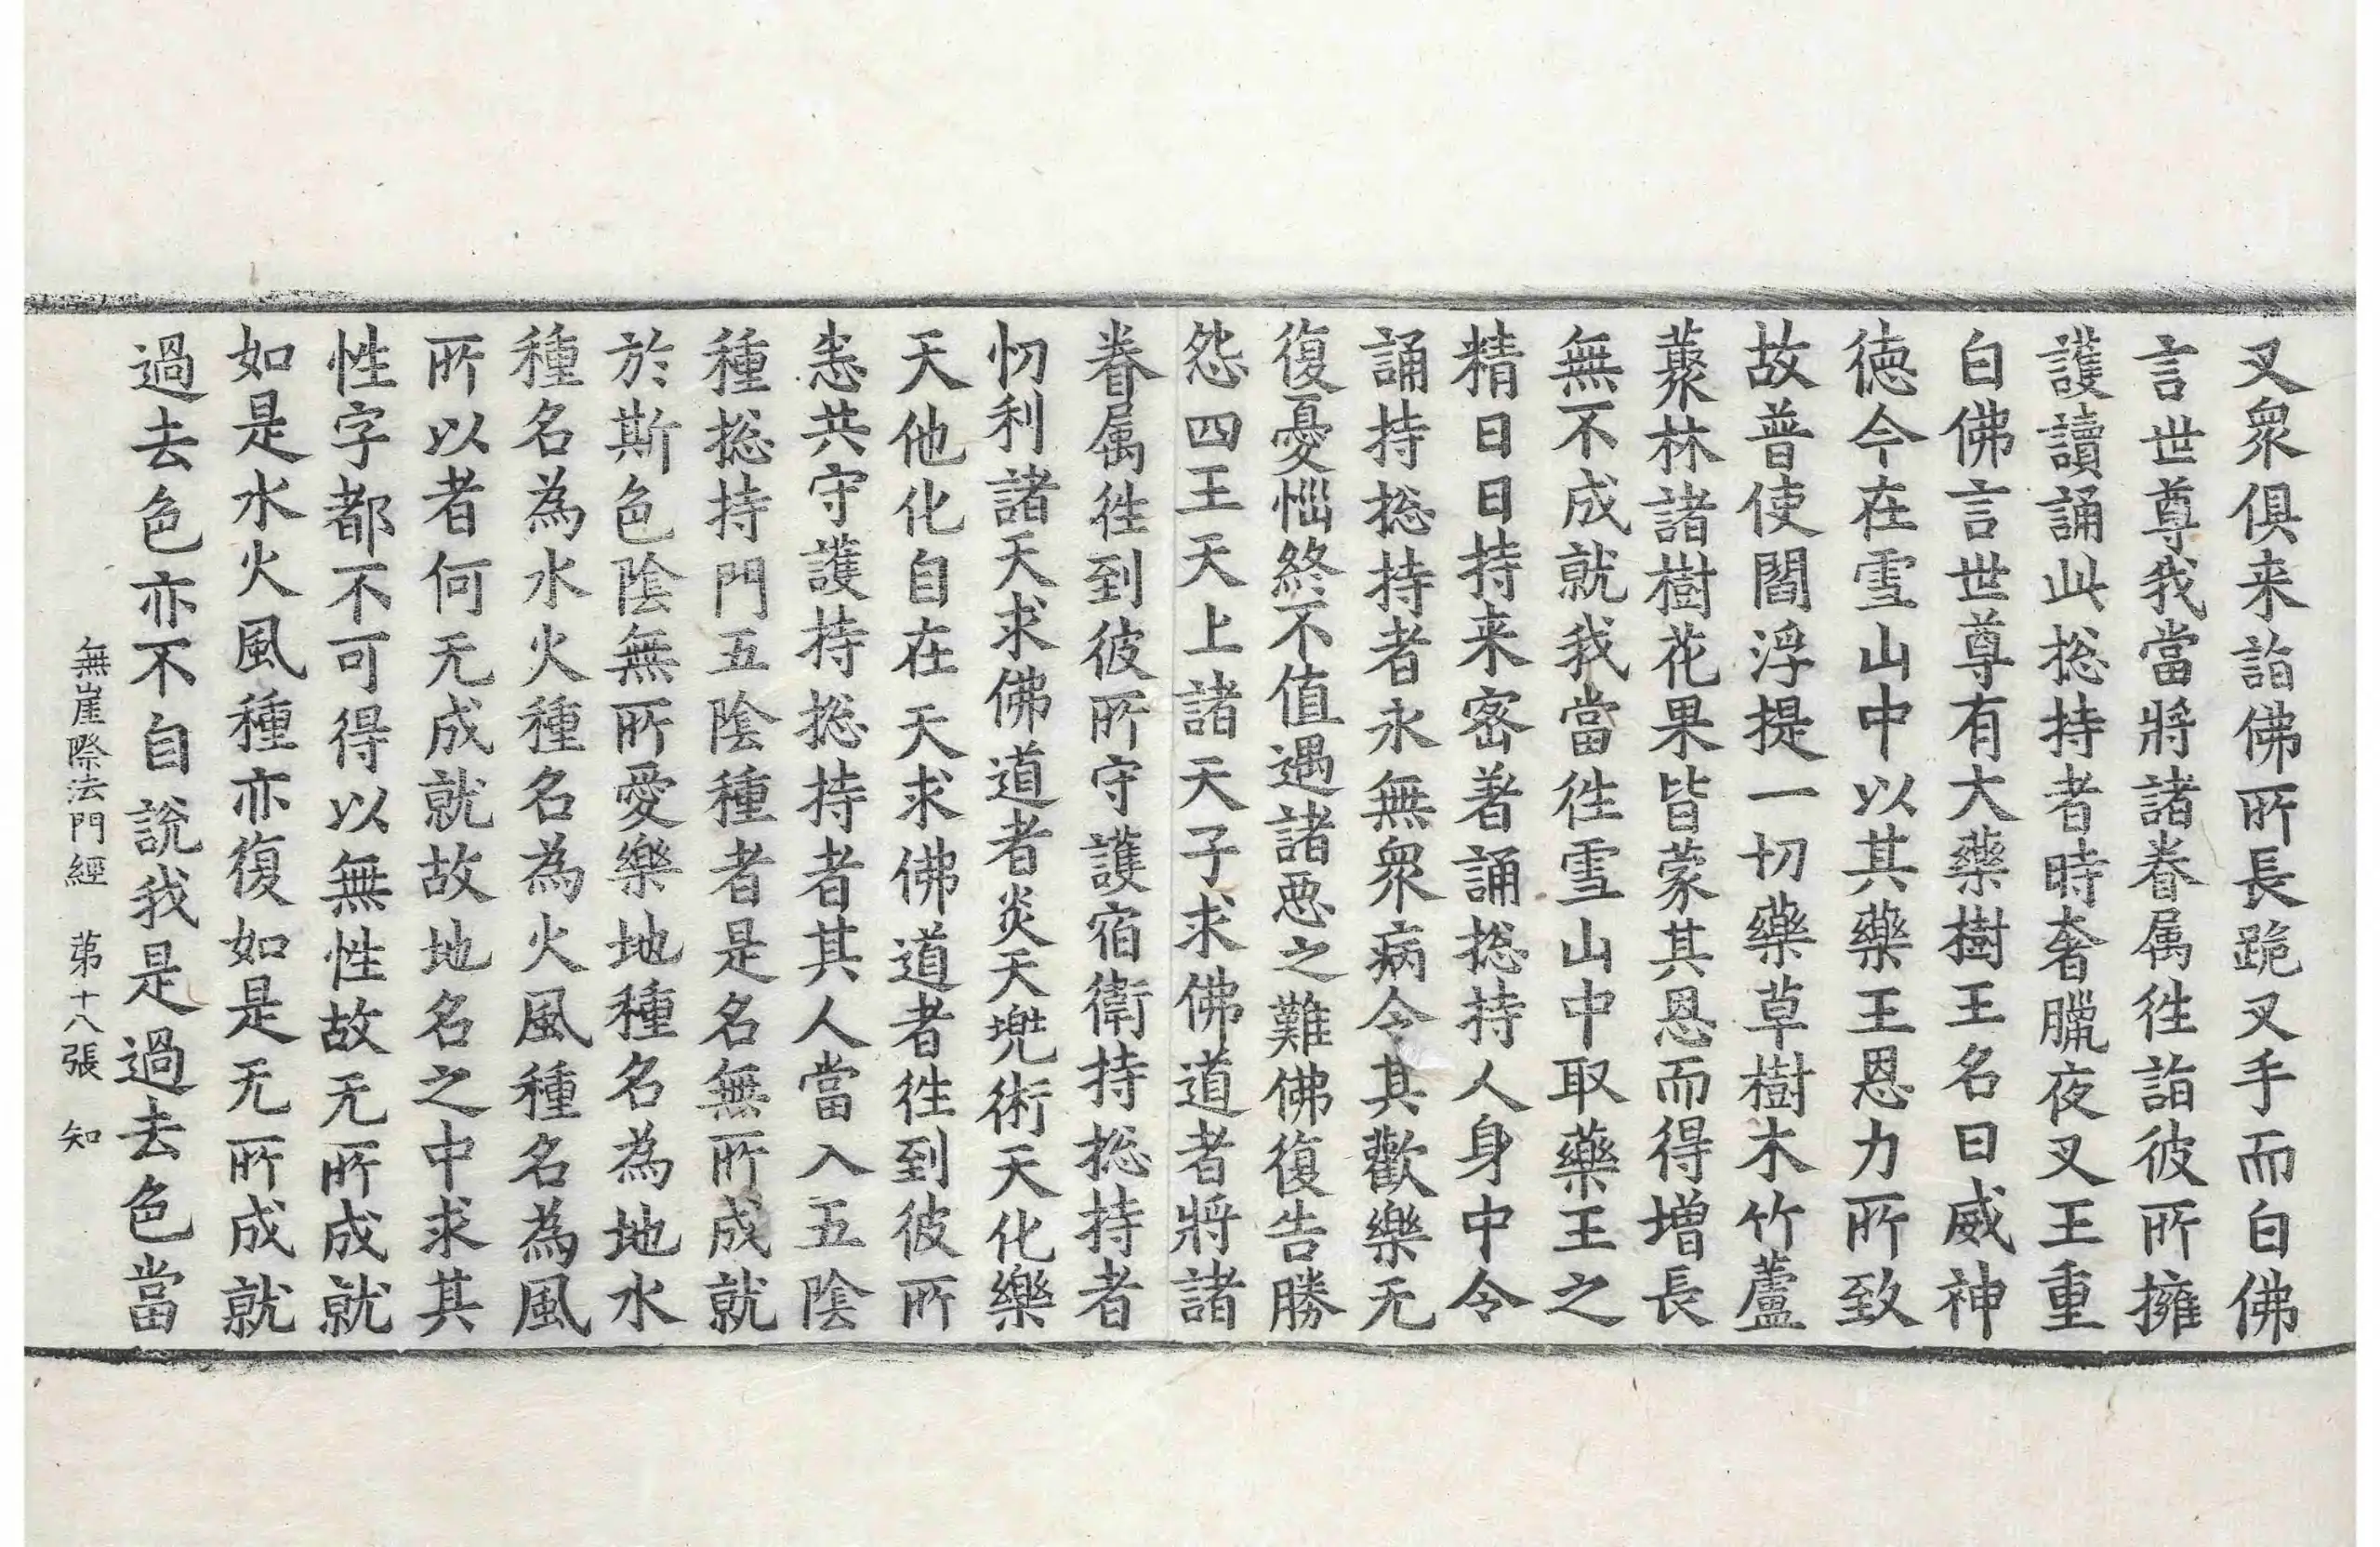 叉衆俱来詣佛所長跪叉手而白佛
言世尊我當將諸眷属徃詣彼所擁
護讀誦此捴持者時奢臘夜叉王重
白佛言世尊有大藥樹王名曰威神
德今在雪山中以其藥王恩力所致
故普使閻浮提一切藥草樹木竹蘆
藂林諸樹花果皆蒙其恩而得增長
無不成就我當徃雪山中取藥王之
精日日持来密著誦捴持人身中令
誦持捴持者永無衆病令其歡樂无
復憂惱終不值遇諸惡之難佛復告勝
怨四王天上諸天子求佛道者將諸
眷属徃到彼所守護宿衛持捴持者
忉利諸天求佛道者炎天兠術天化樂
天他化自在天求佛道者徃到彼所
恚共守護持捴持者其人當入五陰
種捴持門五陰種者是名無所成就
於斯色陰無所愛樂地種名為地水
種名為水火種名為火風種名為風
所以者何无成就故地名之中求其
性字都不可得以無性故无所成就
如是水火風種亦復如是无所成就
過去色亦不自說我是過去色當
無崖際法門經 苐十八張 知